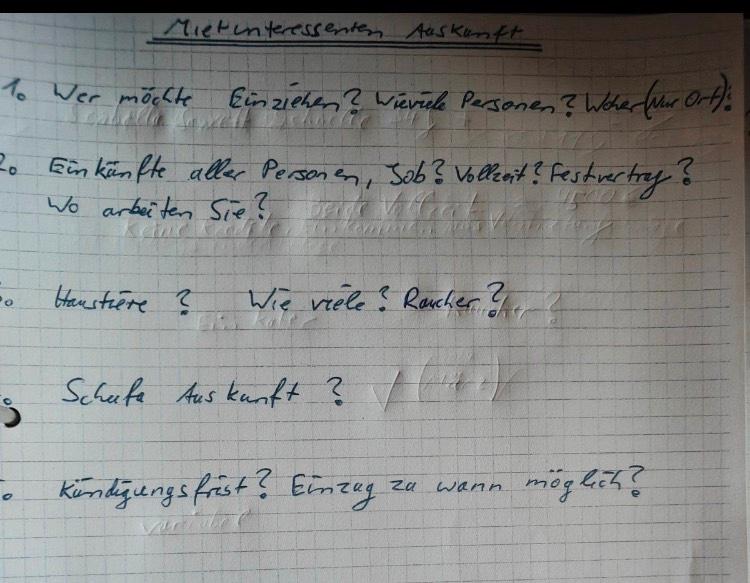 Mietinteressenten Auskunft
1. Wer möchte Einziehen? Wieviele Personen? Woher (Nur Ort)?
2. Einkünfte aller Personen, Job? Vollzeit? Festvertrag?
Wo arbeiten Sie?
beide Vollzeit
Haustiere ? Wie viele? Raucher?
Ein Kater
Schufa Auskunft ?
Kündigungsfrist? Einzug zu wann möglich?
variabel